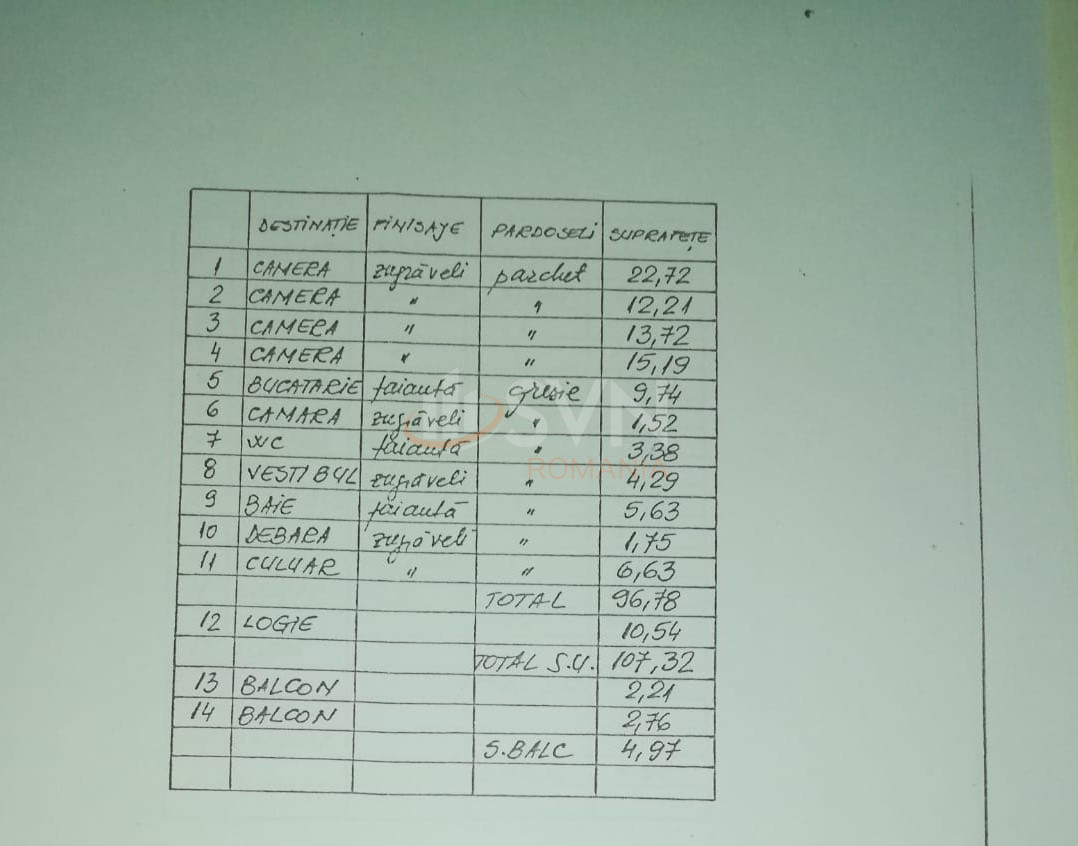 DESTINAȚIE FINISAJE PARDOSELI SUPRAFEȚE
1 CAMERA zugrăveli parchet 22,72
2 CAMERA " " 12,21
3 CAMERA " " 13,72
4 CAMERA " " 15,19
5 BUCATARIE faianță gresie 9,74
6 CAMARA zugrăveli " 1,52
7 WC faianță " 3,38
8 VESTIBUL zugrăveli " 4,29
9 BAIE faianță " 5,63
10 DEBARA zugrăveli " 1,75
11 CULUAR " " 6,63
TOTAL 96,78
12 LOGIE 10,54
TOTAL S.U. 107,32
13 BALCON 2,21
14 BALCON 2,76
S.BALC 4,97
ROMANIA